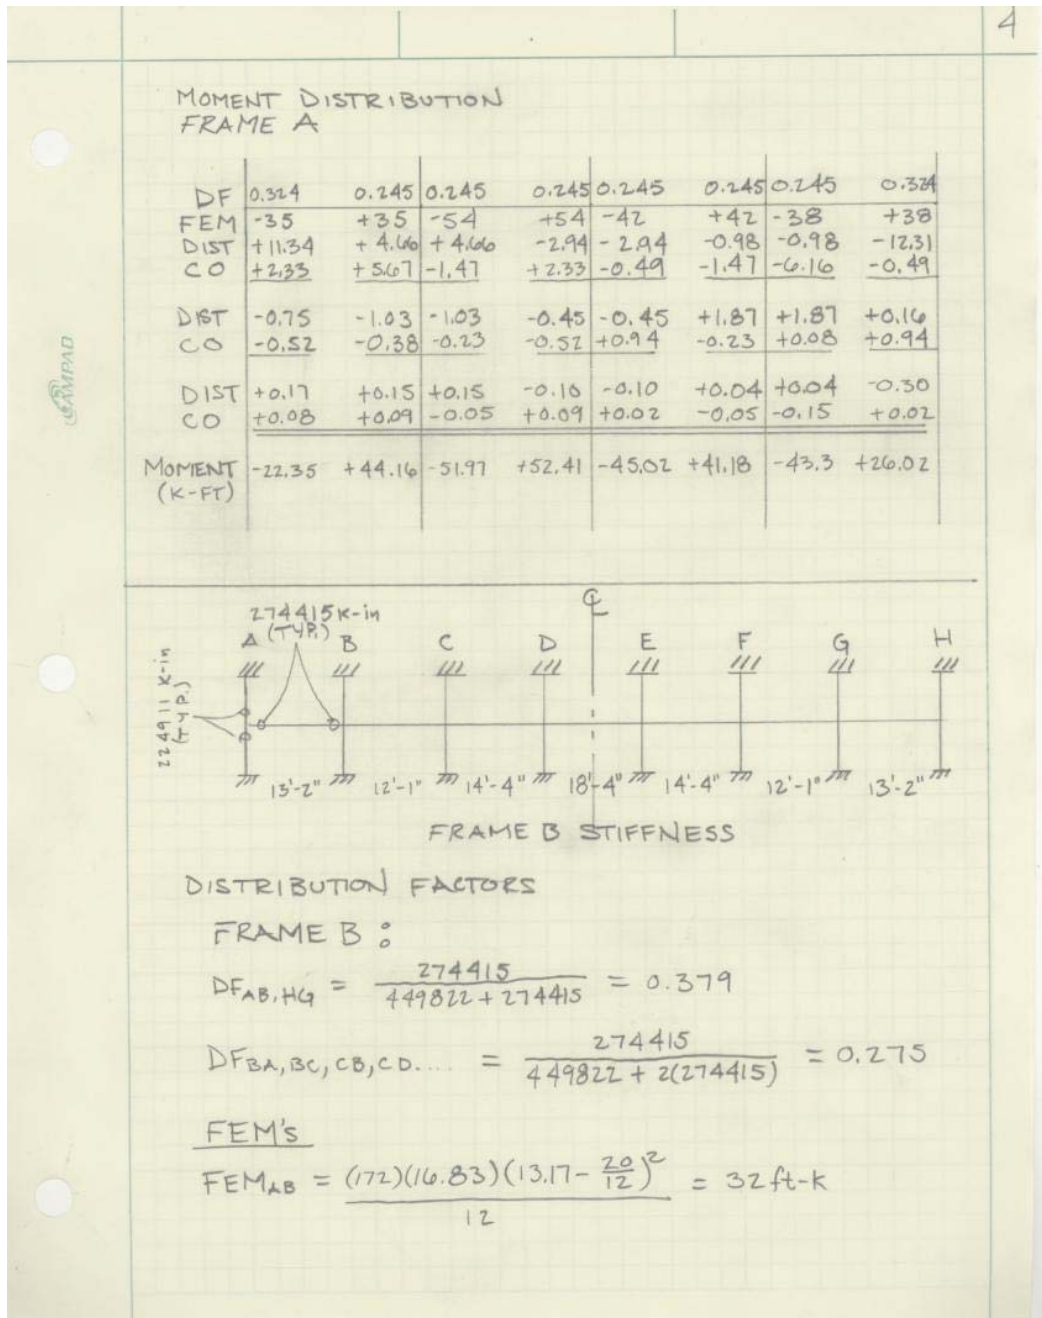 4
MOMENT DISTRIBUTION
FRAME A
DF 0.324 0.245 0.245 0.245 0.245 0.245 0.245 0.324
FEM -35 +35 -54 +54 -42 +42 -38 +38
DIST +11.34 +4.66 +4.66 -2.94 -2.94 -0.98 -0.98 -12.31
CO +2.33 +5.67 -1.47 +2.33 -0.49 -1.47 -6.16 -0.49
DIST -0.75 -1.03 -1.03 -0.45 -0.45 +1.87 +1.87 +0.16
CO -0.52 -0.38 -0.23 -0.52 +0.94 -0.23 +0.08 +0.94
DIST +0.17 +0.15 +0.15 -0.10 -0.10 +0.04 +0.04 -0.30
CO +0.08 +0.09 -0.05 +0.09 +0.02 -0.05 -0.15 +0.02
MOMENT -22.35 +44.16 -51.97 +52.41 -45.02 +41.18 -43.3 +26.02
(K-FT)
AMPAD
274415 K-in
(TYP.)
A B C D E F G H
224911 K-in
(TYP.)
13'-2" 12'-1" 14'-4" 18'-4" 14'-4" 12'-1" 13'-2"
FRAME B STIFFNESS
DISTRIBUTION FACTORS
FRAME B:
DF AB,HG = 274415 / 449822 + 274415 = 0.379
DF BA,BC,CB,CD.... = 274415 / 449822 + 2(274415) = 0.275
FEM's
FEM AB = (172)(16.83)(13.17 - 20/12)² / 12 = 32 ft-k